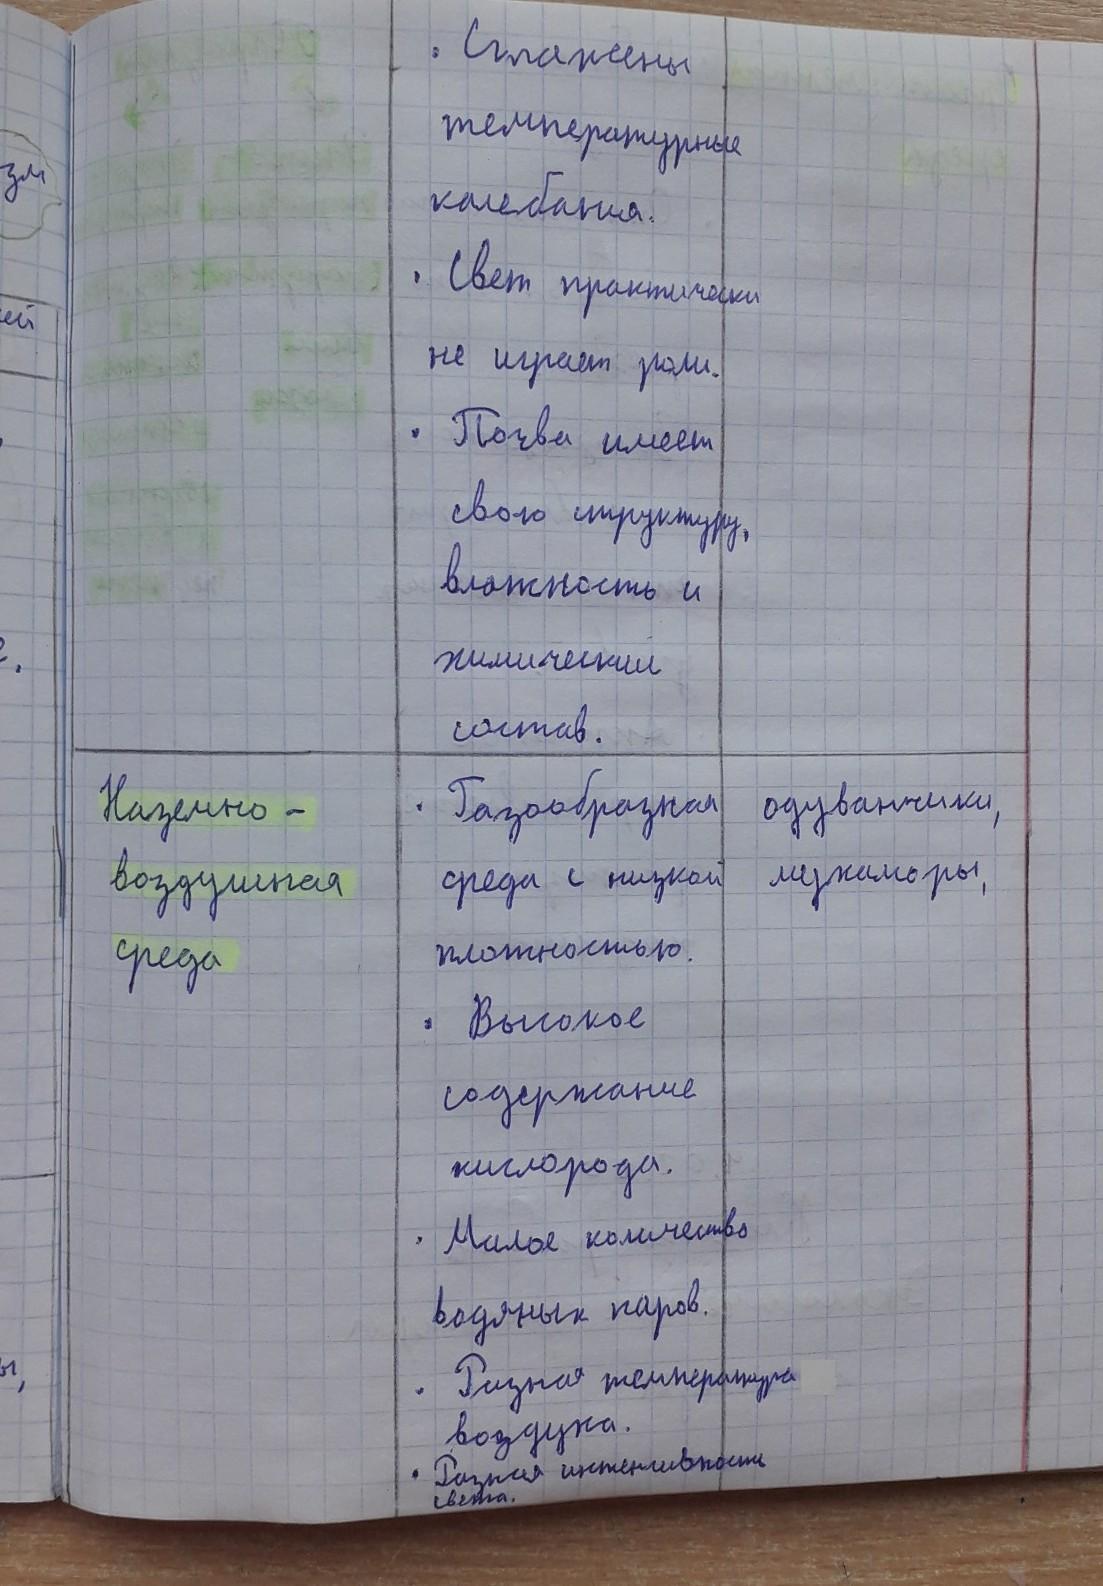 зм
ей
• Сглажены
температурные
колебания.
• Свет практически
не играет роли.
• Почва имеет
свою структуру,
влажность и
химический
состав.
Наземно-
воздушная
среда
• Газообразная
среда с низкой
плотностью.
• Высокое
содержание
кислорода.
• Малое количество
водяных паров.
• Разная температура
воздуха.
• Разная интенсивность
света.
одуванчики,
мухоморы,
ы,